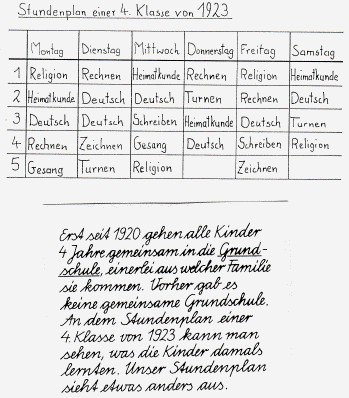 Stundenplan einer 4. Klasse von 1923
Montag Dienstag Mittwoch Donnerstag Freitag Samstag
1 Religion Rechnen Heimatkunde Rechnen Religion Heimatkunde
2 Heimatkunde Deutsch Deutsch Turnen Rechnen Deutsch
3 Deutsch Deutsch Schreiben Heimatkunde Deutsch Turnen
4 Rechnen Zeichnen Gesang Deutsch Schreiben Religion
5 Gesang Turnen Religion Zeichnen
Erst seit 1920 gehen alle Kinder
4 Jahre gemeinsam in die Grund-
schule, einerlei aus welcher Familie
sie kommen. Vorher gab es
keine gemeinsame Grundschule.
An dem Stundenplan einer
4. Klasse von 1923 kann man
sehen, was die Kinder damals
lernten. Unser Stundenplan
sieht etwas anders aus.